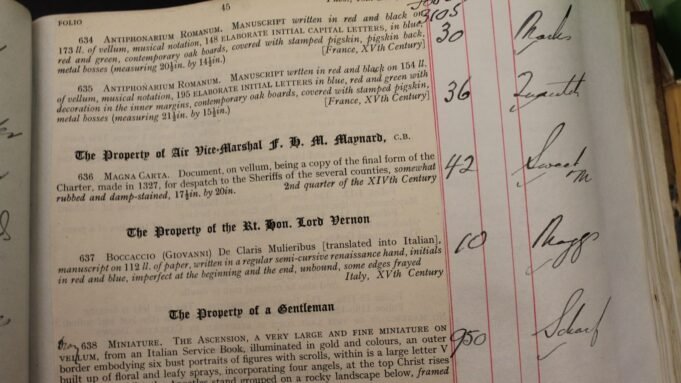 45
FOLIO
634 ANTIPHONARIUM ROMANUM. MANUSCRIPT written in red and black on
173 ll. of vellum, musical notation, 148 ELABORATE INITIAL CAPITAL LETTERS, in blue,
red and green, contemporary oak boards, covered with stamped pigskin, pigskin back,
metal bosses (measuring 20½in. by 14½in.) [France, XVth Century]
30
635 ANTIPHONARIUM ROMANUM. MANUSCRIPT written in red and black on 154 ll.
of vellum, musical notation, 195 ELABORATE INITIAL LETTERS in blue, red and green with
decoration in the inner margins, contemporary oak boards, covered with stamped pigskin,
metal bosses (measuring 21½in. by 15½in.) [France, XVth Century]
36
The Property of Air Vice-Marshal F. H. M. Maynard, C.B.
636 MAGNA CARTA. Document, on vellum, being a copy of the final form of the
Charter, made in 1327, for despatch to the Sheriffs of the several counties, somewhat
rubbed and damp-stained, 17½in. by 20in. 2nd quarter of the XIVth Century
42 Sweet
The Property of the Rt. Hon. Lord Vernon
637 BOCCACCIO (GIOVANNI) De Claris Mulieribus [translated into Italian],
manuscript on 112 ll. of paper, written in a regular semi-cursive renaissance hand, initials
in red and blue, imperfect at the beginning and the end, unbound, some edges frayed
Italy, XVth Century
10 Maggs
The Property of a Gentleman
638 MINIATURE. THE ASCENSION, A VERY LARGE AND FINE MINIATURE ON
VELLUM, from an Italian Service Book, illuminated in gold and colours, an outer
border embodying six bust portraits of figures with scrolls, within is a large letter V
built up of floral and leafy sprays, incorporating four angels, at the top Christ rises
stand grouped on a rocky landscape below, framed
950 Scharf